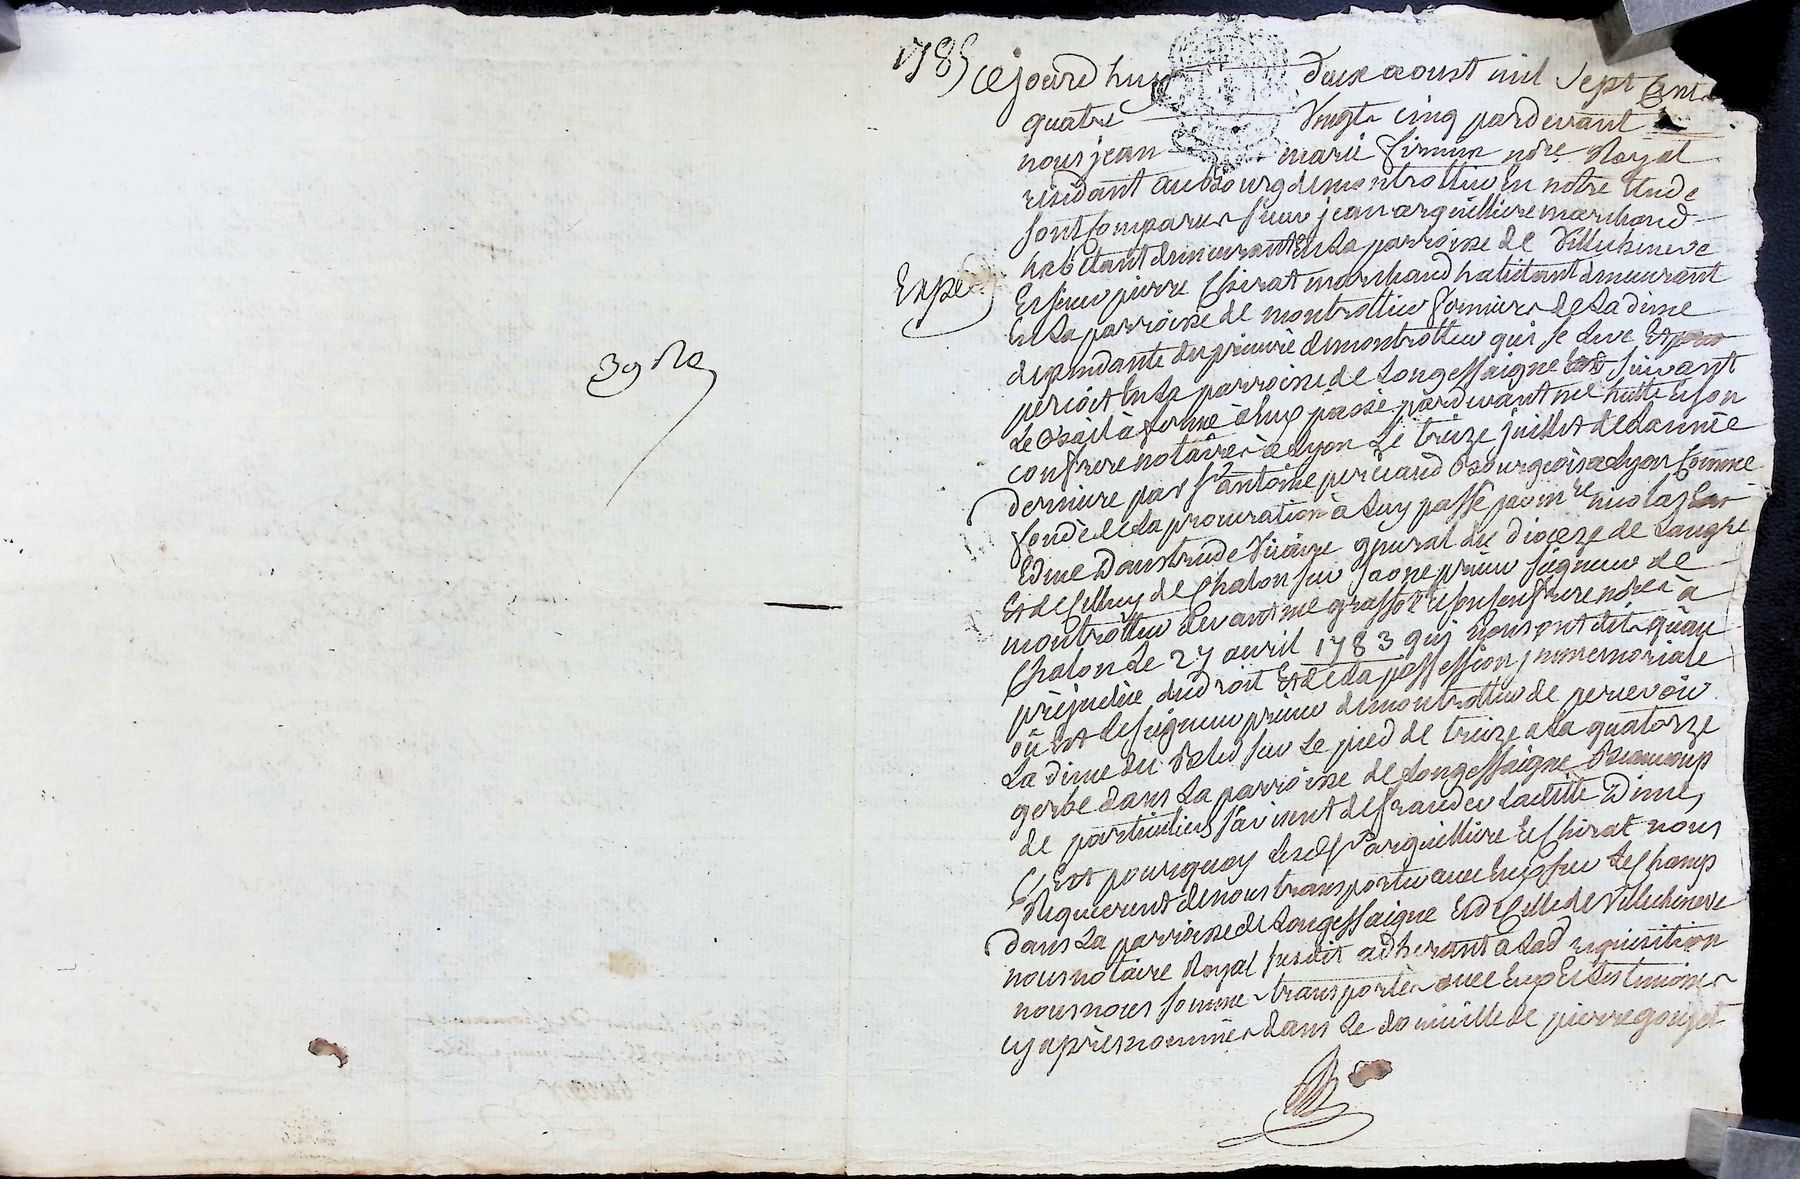 1785
Ce jourd huy deux aoust mil sept cent
quatre vingt cinq pardevant
nous jean marie nore Royal
residant au bourg de montrottier en notre etude
sont comparus sieur jean arquilliere marchand
habitant demeurant en la parroisse de Villecheneve
Et sieur pierre Chirat marchand habitant demeurant
En la parroisse de montrottier fermiers de la dime
dependante du prieuré de montrottier qui se leve Et
persoit en la parroisse de Longessaigne suivant
Le Bail à ferme à eux passé pardevant me et son
confrere notaires à Lyon Le treize juillet de Lannée
derniere par sr antoine pericaud Bourgeois à Lyon comme
fondé de La procuration à Luy passé par mre nicolas
Edme Vicaire general du dioceze de Langre
Et de Celluy de Chalon sur Saone prieur seigneur de
montrottier devant me grassot et son confrere nores à
Chalon Le 27 avril 1783 qui nous ont dit qu'au
préjudice du droit Et de La possession jmmemoriale
où Est Le seigneur prieur de montrottier de percevoir
La dime du Bled sur Le pied de treize a La quatorze
gerbe dans La parroisse de Longessaigne Beaucoup
de particuliers s'avisent de frauder Laditte Dime,
C'Est pourquoy Lesd srs arquilliere Et Chirat nous
Requierent de nous transporter avec Eux sur Le Champ
dans La parroisse de Longessaigne Et de Celle de Villecheneve
nous notaire Royal susdit adherant à Lad requisition
nous nous somme transporté avec Eux Et Les temoins
cy après nommés dans Le domicille de pierre goujet
Exped
39 Rle